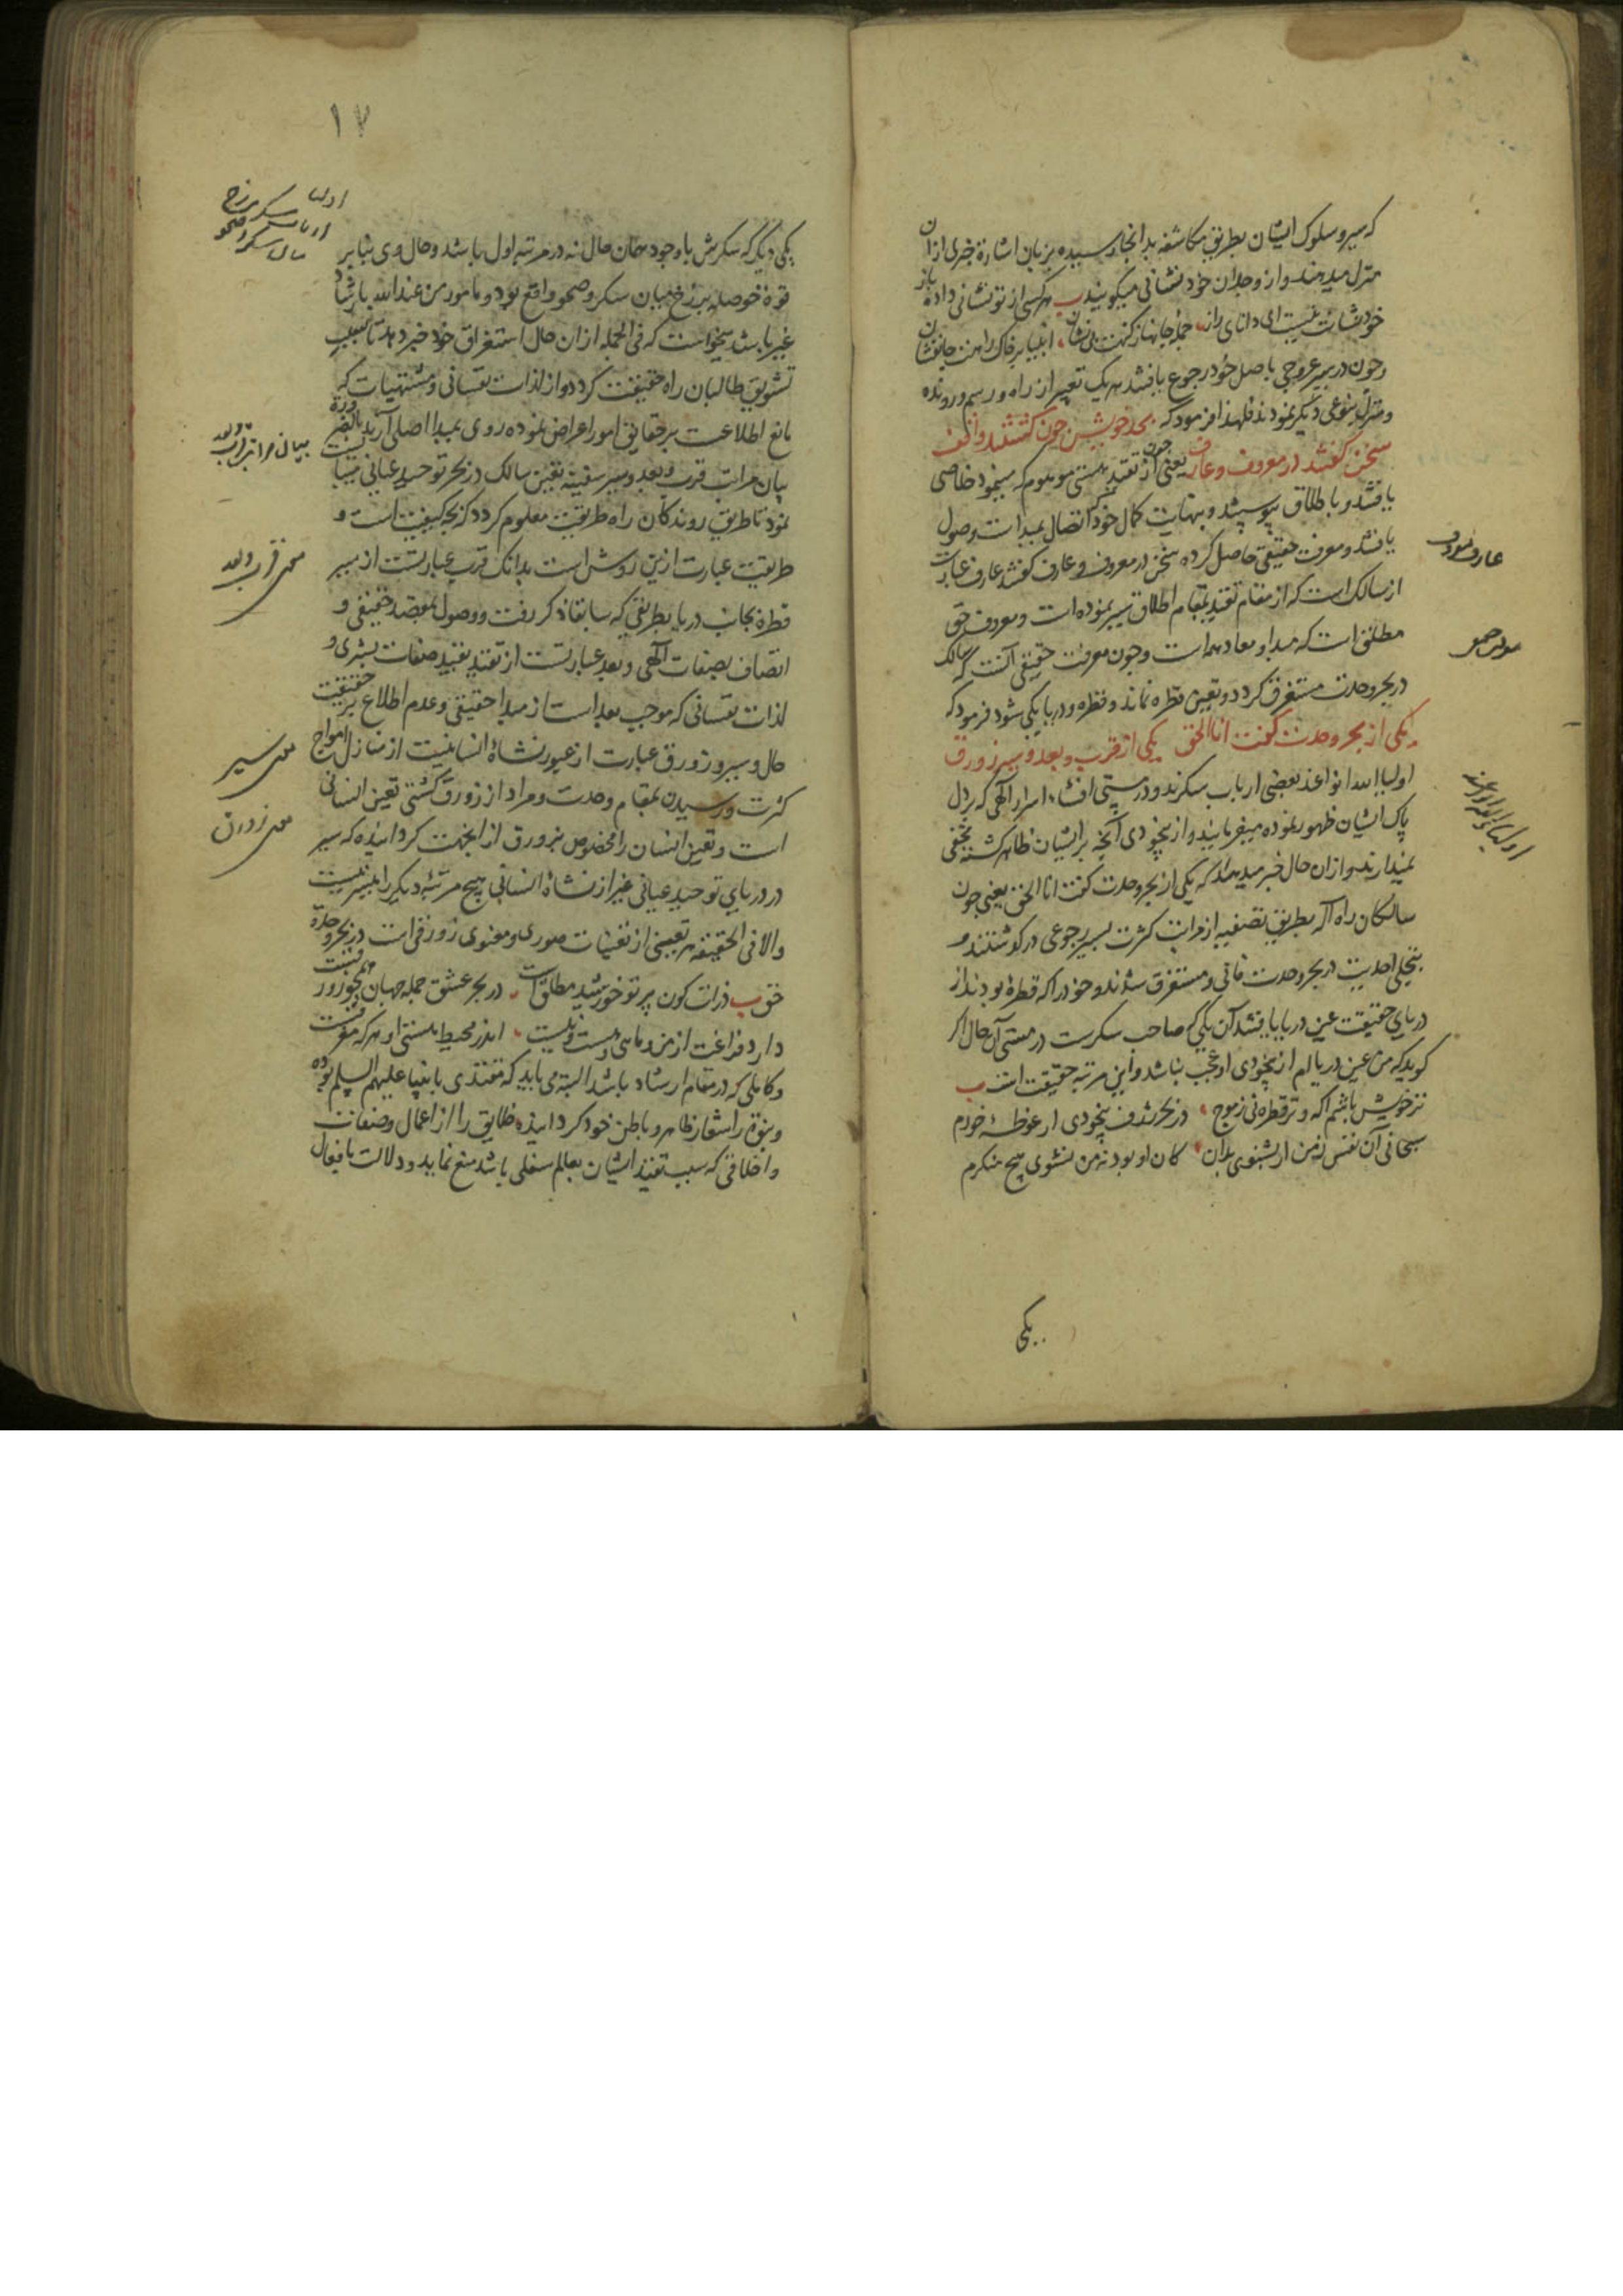 که سیر و سلوک ایشان بطریق مکاشفه بدانجا رسیده بزبان اشارة خبری ازان
منزل میدهند و از وجدان خود نشانی میکویند ب هر کسی از تو نشانی داده باز
خود نشانت نیست ای دانای راز جمله جانها ز کنهت بی نشان انبیا بر خاک راهت جانفشان
و چون در سیر عروجی باصل خود رجوع یافتند هر یک تعبیر از راه و رسم و رونده
و منزل بنوعی دیگر نمودند فلهذا فرمود که بحد خویش چون کشتند واقف
سخن کفتند در معروف و عارف یعنی چون از تقید هستی موهوم که مینمود خلاصی
یافتند و باطلاق پیوستند و بنهایت کمال خود که اتصال بمبداست وصول
یافتند و معرفت حقیقی حاصل کرده سخن در معروف و عارف کفتند عارف عبارت
از سالک است که از مقام تقید بمقام اطلاق سیر نموده است و معروف حق
مطلق است که مبدا و معاد همه است و چون معرفت حقیقی آنست که سالک
در بحر وحدت مستغرق کردد و تعین قطره نماند و قطره و دریا یکی شود فرمود که
یکی از بحر وحدت کفت انا الحق یکی از قرب و بعد و سیر زورق
اولیا الله انواعند بعضی ارباب سکرند و در مستی افشاء اسرار الهی که بر دل
پاک ایشان ظهور نموده میفرمایند و از بیخودی آنچه بر ایشان ظاهر کشته مخفی
نمیدارند و ازان حال خبر میدهند که یکی از بحر وحدت کفت انا الحق یعنی چون
سالکان راه اله بطریق تصفیه از مراتب کثرت بسیر رجوعی درکذشتند و
بتجلی احدیت در بحر وحدت فانی و مستغرق شدند و خود را که قطره بودند از
دریای حقیقت عین دریا یافتند آن یکی که صاحب سکرست در مستی آن حال اکر
کوید که من عین دریاام از بیخودی او عجب نباشد و این مرتبه حقیقت است ب
نز خویش باشم آکه و نز قطره نی ز موج در بحر ژرف بیخودی ار غوطهٔ خورم
سبحانی آن نفس نه من ار بشنوی بدان کان او بود نه من نشنوی هیچ منکرم
یکی
عارف و معروف
اولیاء الله انواعند
۱۷
یکی دیگر که سکرش باوجود همان حال نه در مرتبه اول باشد و حال وی بنابر
قوة حوصله برزخ میان سکر و صحو واقع بود و مامور من عند الله بارشاد
غیر باشد میخواست که فی الجمله ازان حال استغراق خود خبر دهد تا سبب
تشویق طالبان راه حقیقت کردد و از لذات نفسانی و مشتهیات که
مانع اطلاعست بر حقایق امور اعراض نموده روی بمبدا اصلی آرند بالضرورة
بیان مراتب قرب و بعد و سیر سفینه تعین سالک در بحر توحید عیانی
نمود تا طریق روندکان راه طریقت معلوم کردد که بچه کیفیت است و
طریقت عبارت ازین روش است بدانک قرب عبارتست از سیر
قطره بجانب دریا بطریقی که سابقا ذکر رفت و وصول بمقصد حقیقی و
اتصاف بصفات الهی و بعد عبارتست از تقید بقید صفات بشری و
لذات نفسانی که موجب بعد است از مبدا حقیقی و عدم اطلاع بر حقیقت
حال و سیر زورق عبارت از عبور نشاة انسانیست از منازل امواج
کثرت و رسیدن بمقام وحدت و مراد از زورق کشتی تعین انسانی
است و تعین انسان را مخصوص بزورق از انجهت کردانیده که سیر
در دریای توحید عیانی غیر از نشاة انسانی هیچ مرتبه دیکر را میسر نیست
والا فی الحقیقه هر تعینی از تعینات صوری و معنوی زورقی است در بحر وحدة
حق ب ذرات کون پرتو خورشید مطلق است در بحر عشق جمله جهان همچو زورقیست
دارد فراغت از من و ما هی و هست و نیست اندر محیط هستی او هر که
و کاملی که در مقام ارشاد باشد البته می باید که مقتدی بانبیا علیهم السلم بوده
و نبوة را شعار ظاهر و باطن خود کردانیده خلایق را از اعمال و صفات
و اخلاقی که سبب تقید ایشان بعالم سفلی باشد منع نماید و دلالت بافعال
بیان مراتب قرب و بعد
معنی قرب و بعد
معنی سیر
معنی زورق